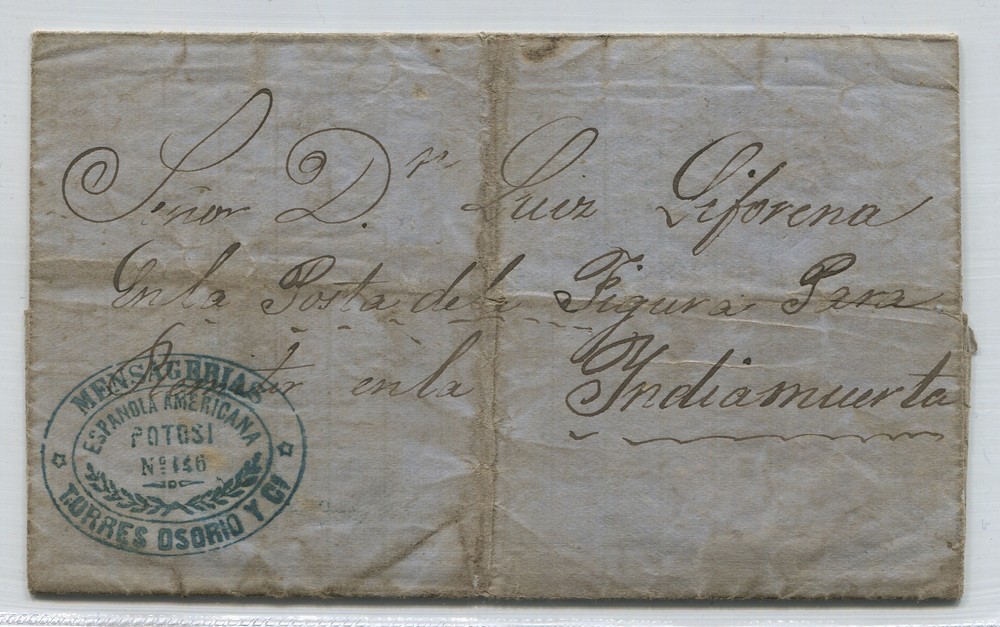 Señor D.n Luiz Liforena
En la Posta de la Figura Para
Remitir en la Yndiamuerta
MENSAGERIAS
ESPAÑOLA AMERICANA
POTOSI
Nº 146
TORRES OSORIO Y Cª